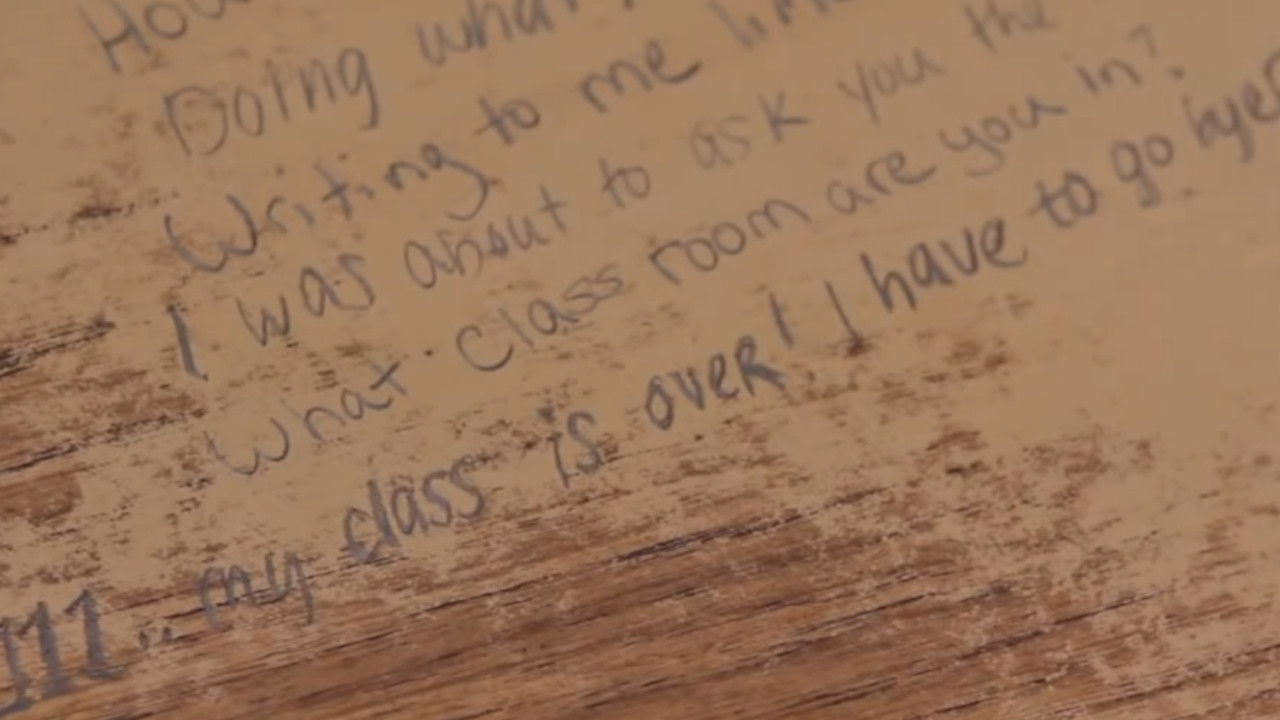 Doing what
Writing to me
I was about to ask you the
What class room are you in?
my class is over! I have to go